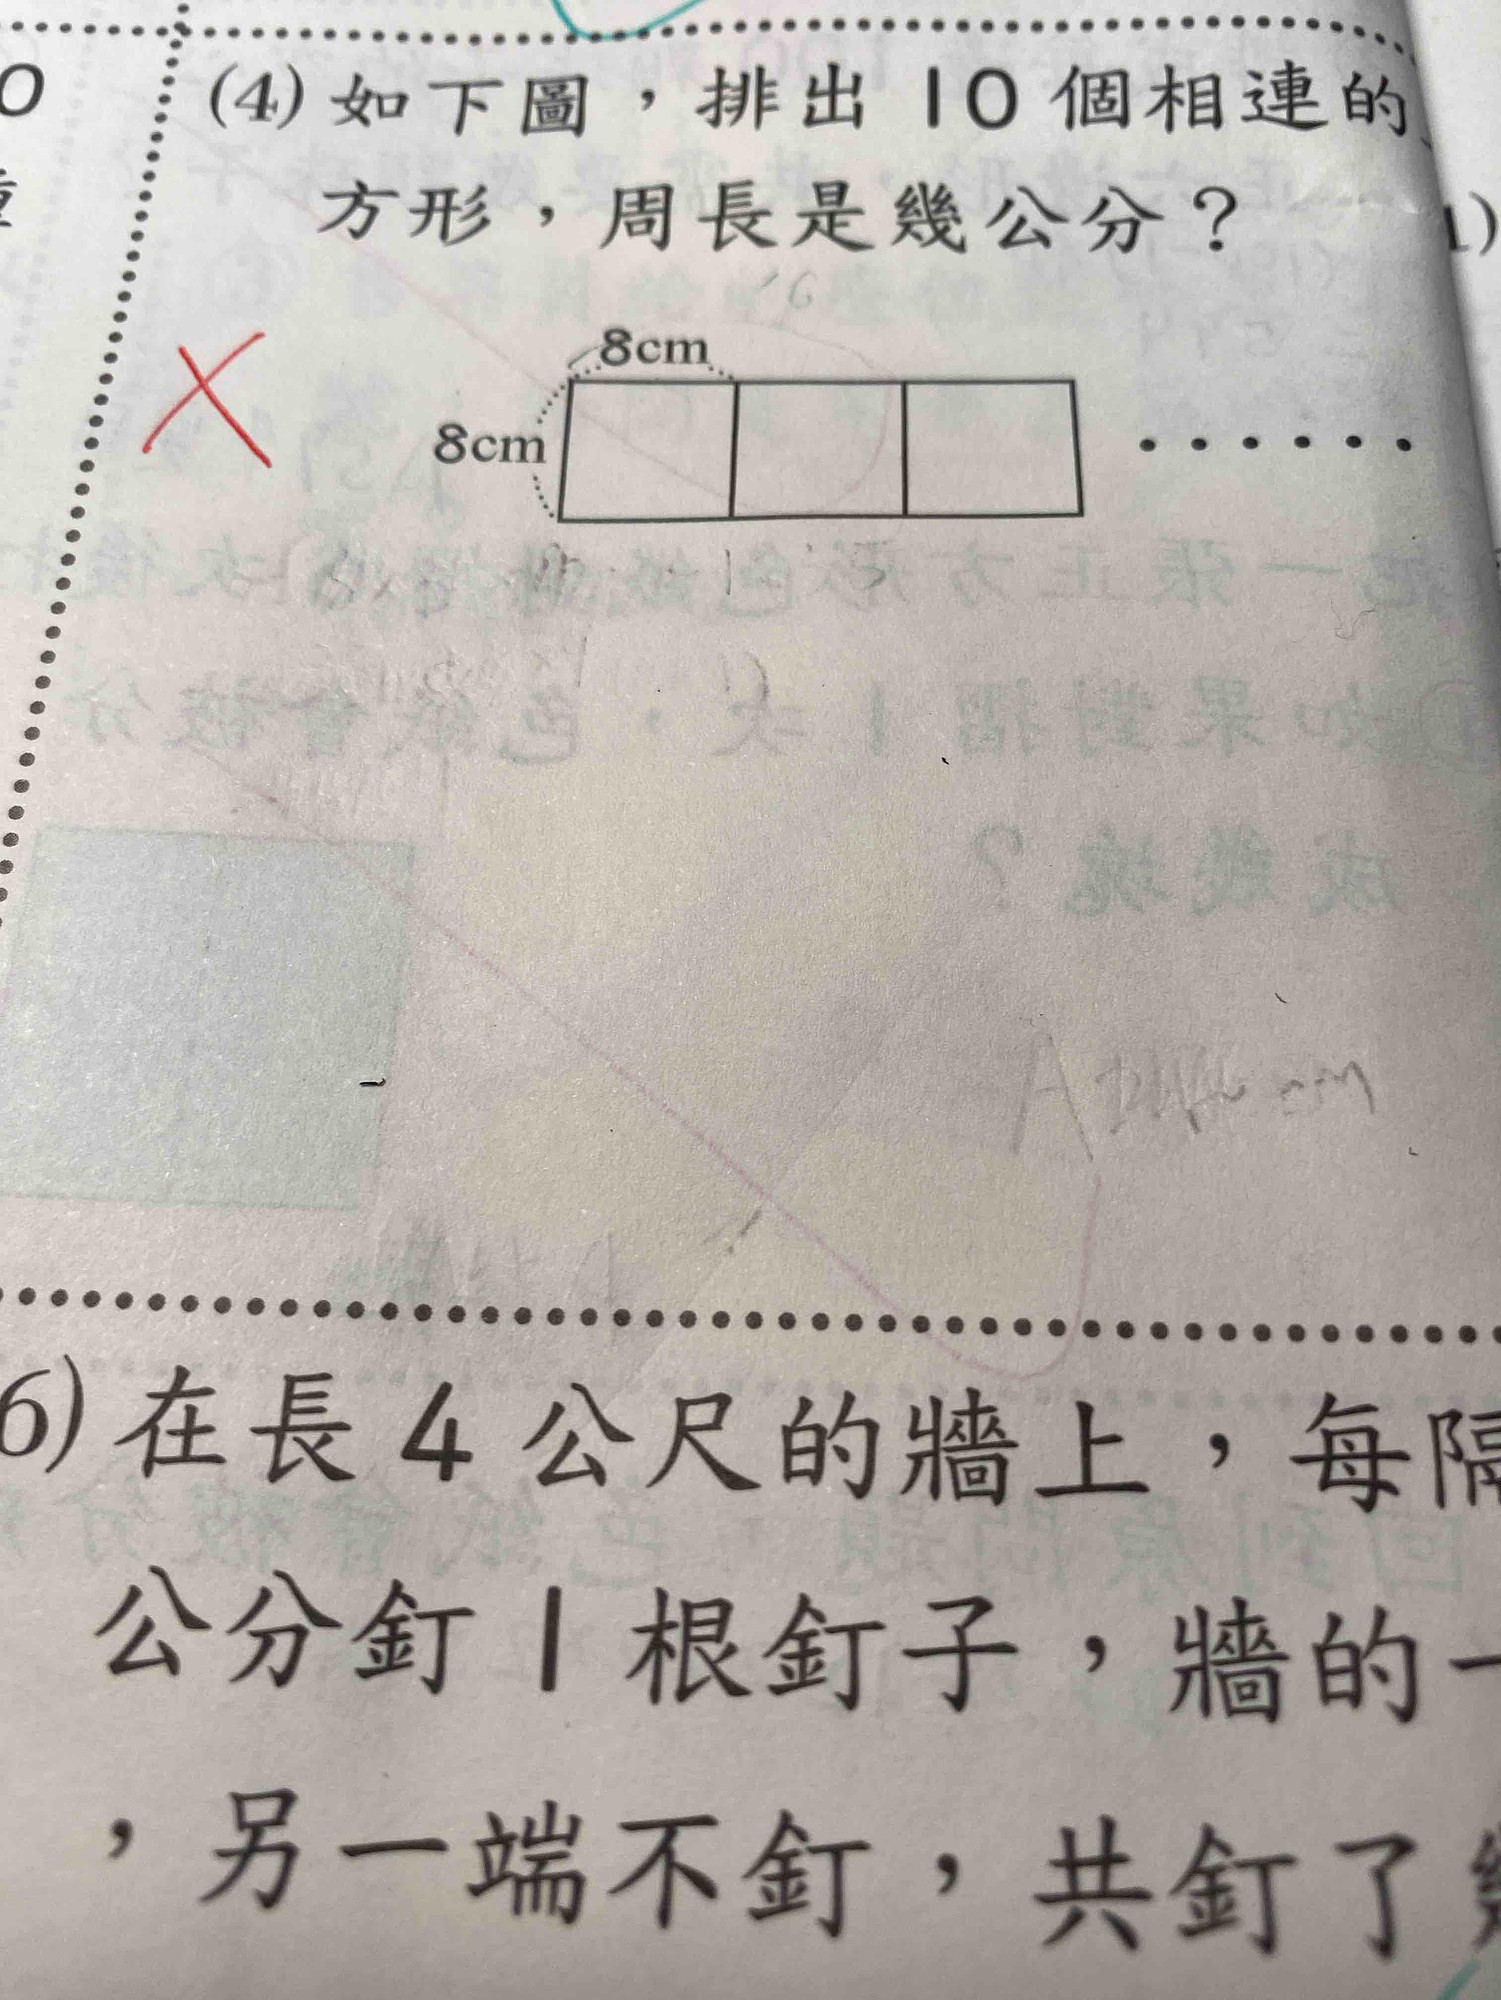 (4) 如下圖，排出 10 個相連的
方形，周長是幾公分？
8cm
8cm
6) 在長 4 公尺的牆上，每隔
公分釘 1 根釘子，牆的一
，另一端不釘，共釘了幾